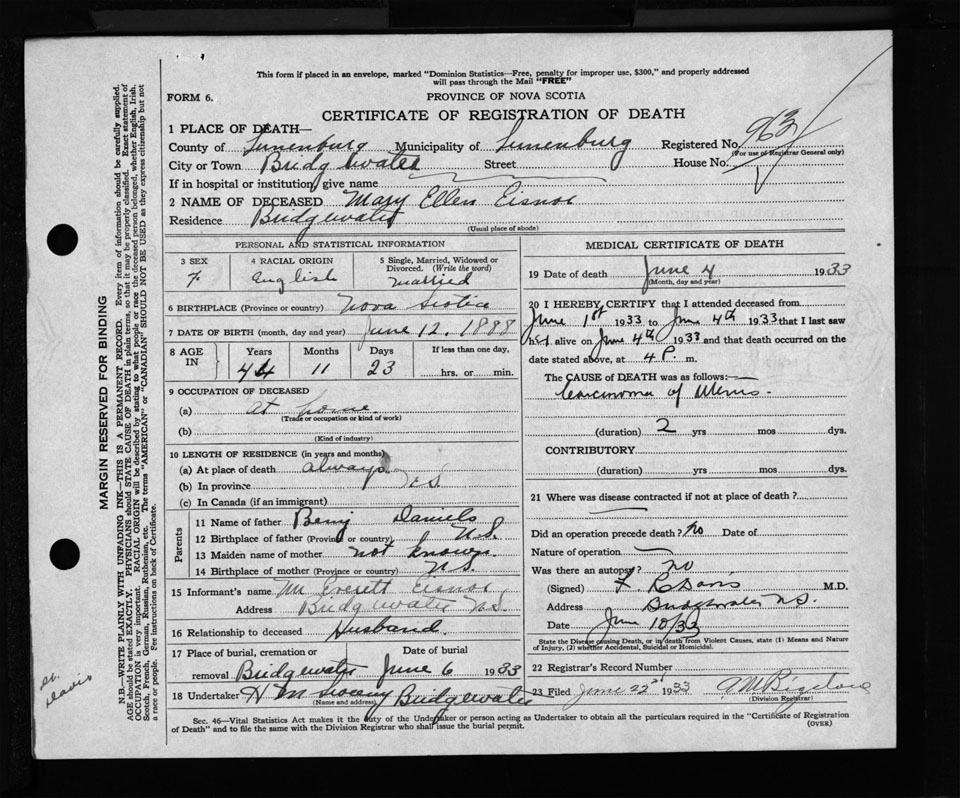 This form if placed in an envelope, marked "Dominion Statistics—Free, penalty for improper use, $300," and properly addressed
will pass through the Mail "FREE"
FORM 6. PROVINCE OF NOVA SCOTIA
CERTIFICATE OF REGISTRATION OF DEATH
1 PLACE OF DEATH—
County of Lunenburg Municipality of Lunenburg Registered No. 963
(For use of Registrar General only)
City or Town Bridgewater Street House No.
If in hospital or institution, give name
2 NAME OF DECEASED Mary Ellen Eisnor
Residence Bridgewater
(Usual place of abode)
PERSONAL AND STATISTICAL INFORMATION
3 SEX 4 RACIAL ORIGIN 5 Single, Married, Widowed or
Divorced. (Write the word)
F. English married
6 BIRTHPLACE (Province or country) Nova Scotia
7 DATE OF BIRTH (month, day and year) June 12, 1888
8 AGE IN Years Months Days If less than one day,
44 11 23 hrs. or min.
9 OCCUPATION OF DECEASED
(a) at home
(Trade or occupation or kind of work)
(b)
(Kind of industry)
10 LENGTH OF RESIDENCE (in years and months)
(a) At place of death always
(b) In province N.S.
(c) In Canada (if an immigrant)
Parents
11 Name of father Benj Daniels
12 Birthplace of father (Province or country) N.S.
13 Maiden name of mother not known
14 Birthplace of mother (Province or country) N.S.
15 Informant's name Mr Everett Eisnor
Address Bridgewater N.S.
16 Relationship to deceased Husband
17 Place of burial, cremation or Date of burial
removal Bridgewater June 6 1933
18 Undertaker Bridgewater
(Name and address)
MEDICAL CERTIFICATE OF DEATH
19 Date of death June 4 1933
(Month, day and year)
20 I HEREBY CERTIFY that I attended deceased from
June 1st 1933 to June 4th 1933 that I last saw
her alive on June 4th 1933 and that death occurred on the
date stated above, at 4 P. m.
The CAUSE of DEATH was as follows:
Carcinoma of Uterus.
(duration) 2 yrs mos dys.
CONTRIBUTORY
(duration) yrs mos dys.
21 Where was disease contracted if not at place of death?
Did an operation precede death? No Date of
Nature of operation
Was there an autopsy? NO
(Signed) Davis M.D.
Address Bridgewater N.S.
Date June 10/33
State the Disease causing Death, or in death from Violent Causes, state (1) Means and Nature
of Injury, (2) whether Accidental, Suicidal or Homicidal.
22 Registrar's Record Number
23 Filed June 22nd 1933
(Division Registrar)
Sec. 46—Vital Statistics Act makes it the duty of the Undertaker or person acting as Undertaker to obtain all the particulars required in the "Certificate of Registration
of Death" and to file the same with the Division Registrar who shall issue the burial permit. (OVER)
MARGIN RESERVED FOR BINDING
N.B.—WRITE PLAINLY WITH UNFADING INK—THIS IS A PERMANENT RECORD. Every item of information should be carefully supplied.
AGE should be stated EXACTLY. PHYSICIANS should STATE CAUSE OF DEATH in plain terms, so that it may be properly classified. Exact statement of
OCCUPATION is very important. RACIAL ORIGIN will be described by stating to what people or race the deceased person belonged, whether English, Irish,
Scotch, French, German, Russian, Ruthenian, etc. The terms "AMERICAN" or "CANADIAN" SHOULD NOT BE USED as they express citizenship but not
a race or people. See instructions on back of Certificate.
Davis